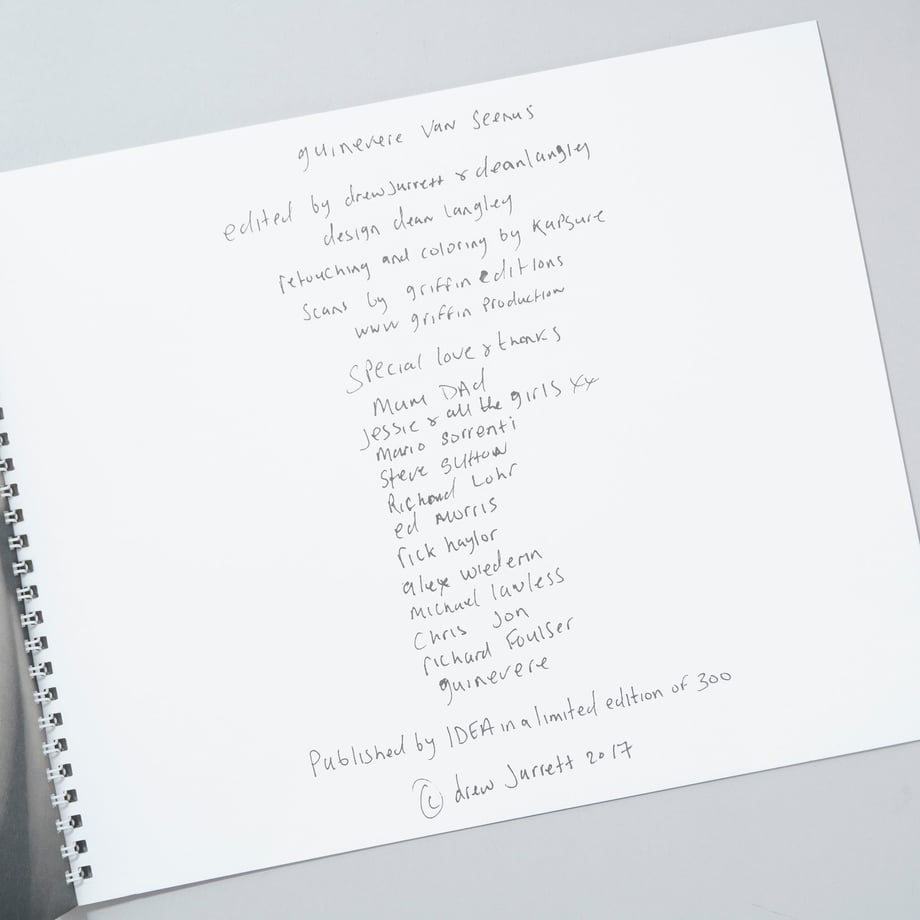 guinevere Van Seenus
edited by drew Jarrett & dean langley
design dean langley
retouching and coloring by Kapsure
Scans by griffin editions
www griffin Production
Special love & thanks
Mum DAd
Jessie & all the girls xx
Mario Sorrenti
Steve Sutton
Richard Lohr
ed Morris
rick haylor
alex wiederin
Michael lawless
Chris Jon
richard Foulser
guinevere
Published by IDEA in a limited edition of 300
© drew Jarrett 2017